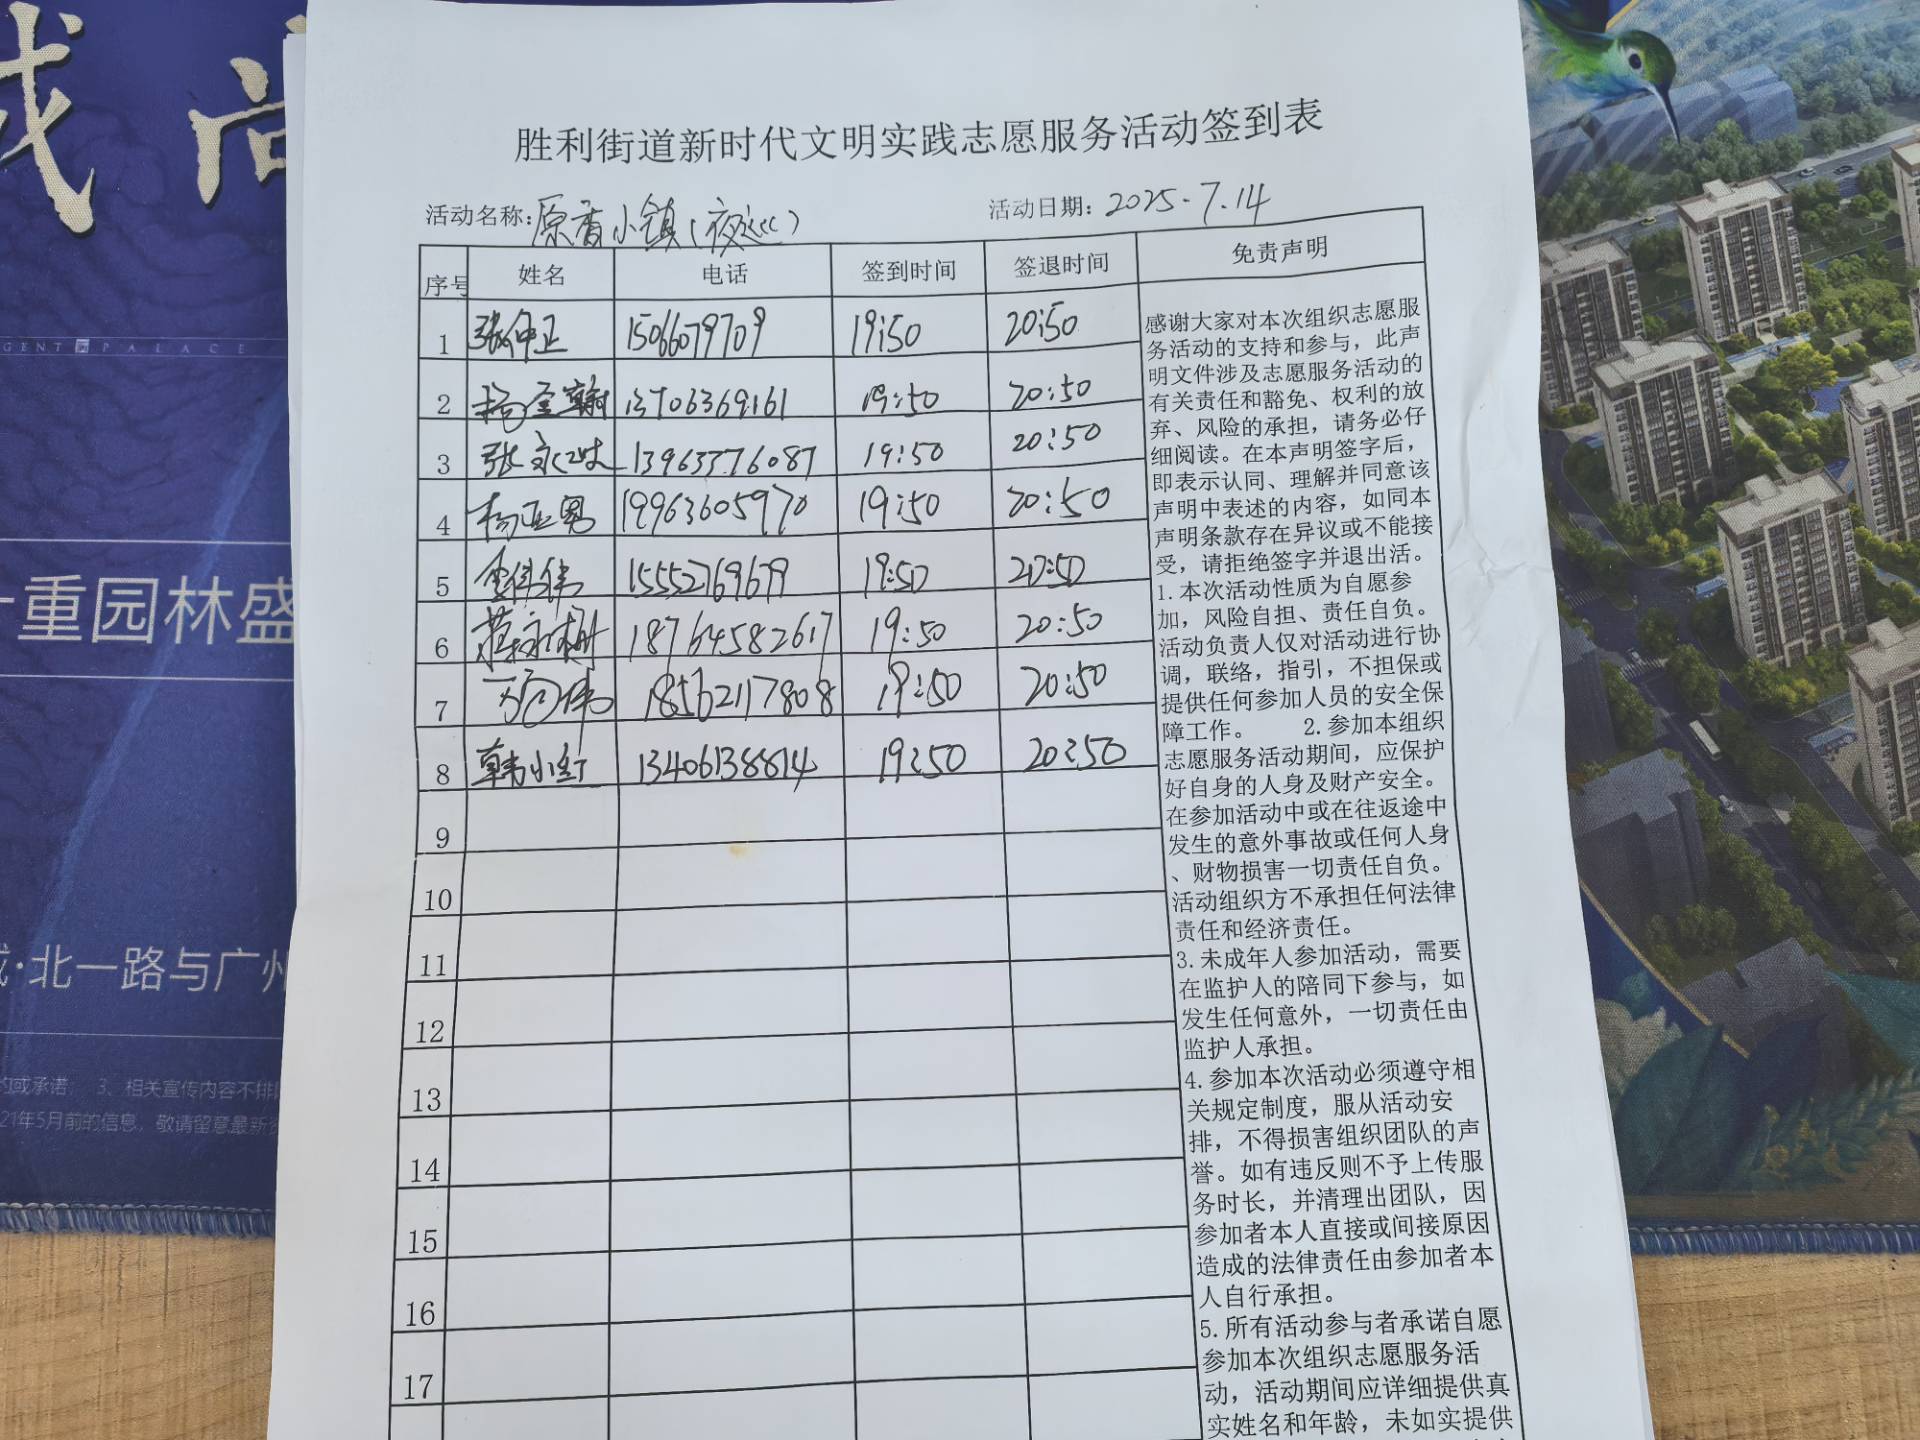 胜利街道新时代文明实践志愿服务活动签到表
活动名称:原香小镇(夜巡)
活动日期: 2025.7.14
序号 姓名 电话 签到时间 签退时间 免责声明
1 张仲正 15066079709 19:50 20:50
2 13706369161 19:50 20:50
3 张 13963376087 19:50 20:50
4 杨亚男 19963605970 19:50 20:50
5 15552769679 19:50 20:50
6 18764582617 19:50 20:50
7 18562117808 19:50 20:50
8 韩小红 13406138814 19:50 20:50
9
10
11
12
13
14
15
16
17
感谢大家对本次组织志愿服
务活动的支持和参与，此声
明文件涉及志愿服务活动的
有关责任和豁免、权利的放
弃、风险的承担，请务必仔
细阅读。在本声明签字后，
即表示认同、理解并同意该
声明中表述的内容，如同本
声明条款存在异议或不能接
受，请拒绝签字并退出活。
1.本次活动性质为自愿参
加，风险自担、责任自负。
活动负责人仅对活动进行协
调，联络，指引，不担保或
提供任何参加人员的安全保
障工作。 2.参加本组织
志愿服务活动期间，应保护
好自身的人身及财产安全。
在参加活动中或在往返途中
发生的意外事故或任何人身
、财物损害一切责任自负。
活动组织方不承担任何法律
责任和经济责任。
3.未成年人参加活动，需要
在监护人的陪同下参与，如
发生任何意外，一切责任由
监护人承担。
4.参加本次活动必须遵守相
关规定制度，服从活动安
排，不得损害组织团队的声
誉。如有违反则不予上传服
务时长，并清理出团队，因
参加者本人直接或间接原因
造成的法律责任由参加者本
人自行承担。
5.所有活动参与者承诺自愿
参加本次组织志愿服务活
动，活动期间应详细提供真
实姓名和年龄，未如实提供
GENT PALACE
重园林盛
·北一路与广州
或承诺; 3、相关宣传内容不排
21年5月前的信息，敬请留意最新